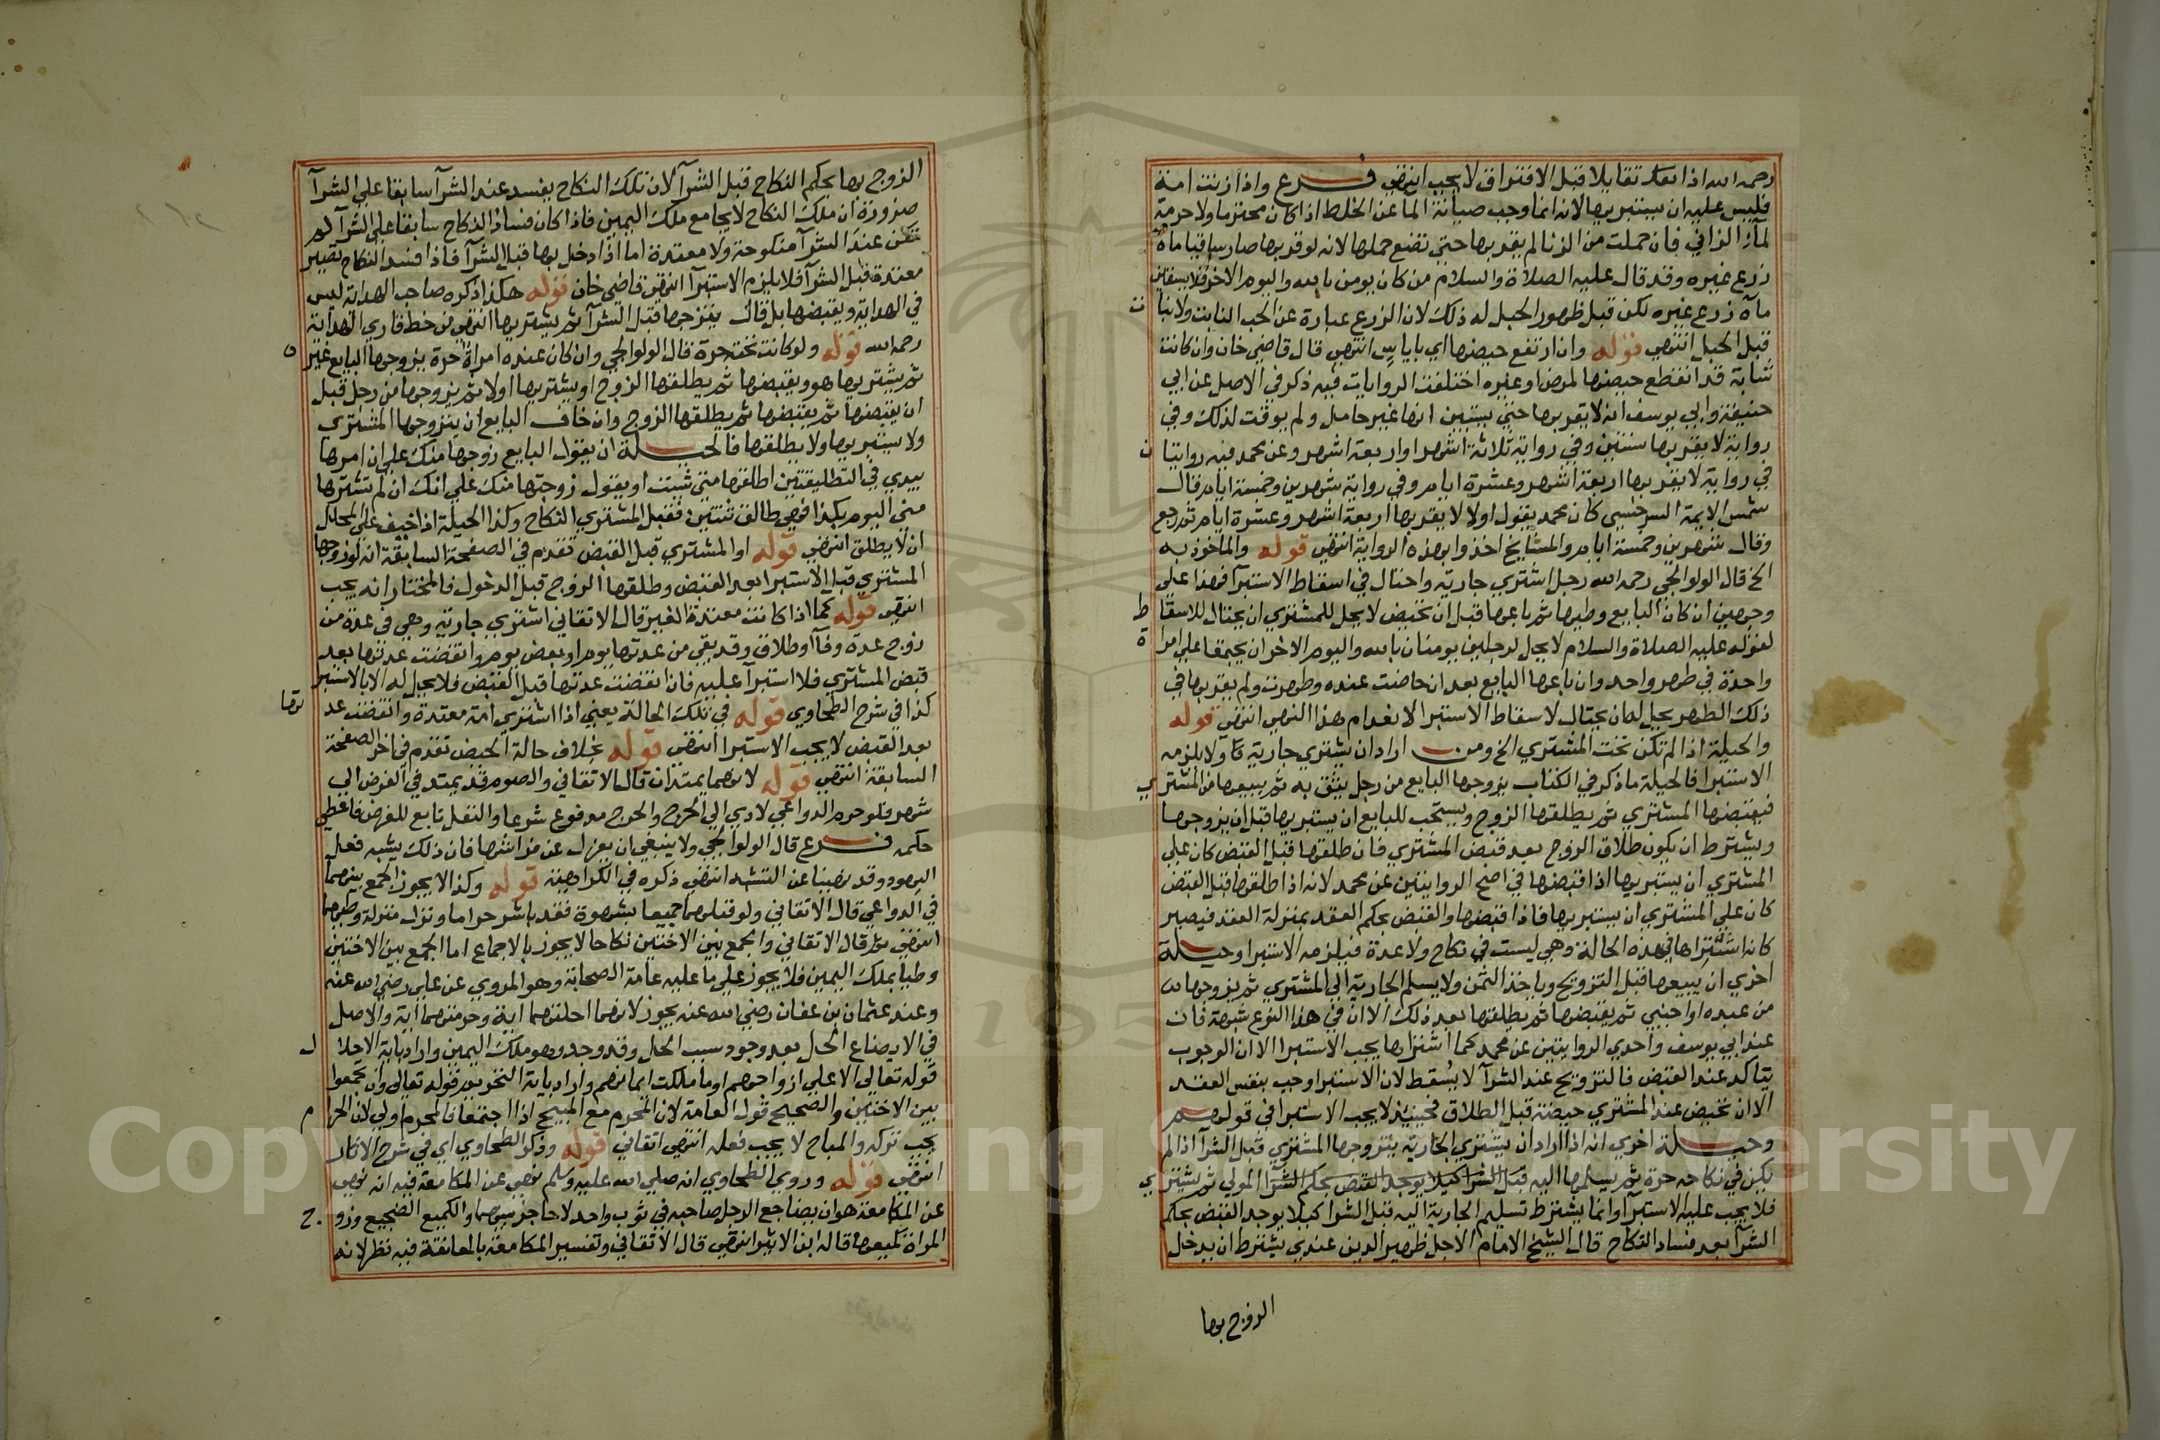 رحمه الله اذا تقابلا قبل الافتراق لا يجب انتهى فرع واذا زنت امته
فليس عليه ان يستبريها لانه انما وجب صيانة الما عن الخلط اذا كان محترما ولا حرمة
لمآء الزاني فان حملت من الزنا لم يقربها حتى تضع حملها لانه لو قربها صار ساقيا ماه
زرع غيره وقد قال عليه الصلاة والسلام من كان يومن بالله واليوم الاخر فلا يسقين
مآه زرع غيره لكن قبل ظهور الحبل له ذلك لان الزرع عبارة عن الحب النابت ولا نبات
قبل الحبل انتهى قوله وان ارتفع حيضها اي باياس انتهى قال قاضي خان وان كانت
شابة قد انقطع حيضها لمرض او غيره اختلفت الروايات فيه ذكر في الاصل عن ابي
حنيفة وابي يوسف انه لا يقربها حتى يستبين انها غير حامل ولم يوقت لذلك وفي
رواية لا يقربها سنتين وفي رواية ثلاثة اشهر او اربعة اشهر وعن محمد فيه روايتان
في رواية لا يقربها اربعة اشهر وعشرة ايام وفي رواية شهرين وخمسة ايام قال
شمس الايمة السرخسي كان محمد يقول اولا لا يقربها اربعة اشهر وعشرة ايام ثم رجع
وقال شهرين وخمسة ايام والمشايخ اخذوا بهذه الرواية انتهى قوله والماخوذ به
الخ قال الولوالجي رحمه الله رجل اشترى جارية واحتال في اسقاط الاستبرآ فهذا على
وجهين ان كان البايع وطيها ثم باعها قبل ان تحيض لا يحل للمشتري ان يحتال للاسقاط
لقوله عليه الصلاة والسلام لا يحل لرجلين يومنان بالله واليوم الاخر ان يجتمعا على امراة
واحدة في طهر واحد وان باعها البايع بعد ان حاضت عنده وطهرت ولم يقربها في
ذلك الطهر يحل له ان يحتال لاسقاط الاستبرا لانعدام هذا النص انتهى قوله
والحيلة اذا لم تكن تحت المشتري الخ ومن اراد ان يشتري جارية ولا يلزمه
الاستبرا فالحيلة ما ذكر في الكتاب يزوجها البايع من رجل يثق به ثم يبيعها من المشتري
فيقبضها المشتري ثم يطلقها الزوج ويستحب للبايع ان يستبريها قبل ان يزوجها
ويشترط ان يكون طلاق الزوج بعد قبض المشتري فان طلقها قبل القبض كان على
المشتري ان يستبريها اذا قبضها في اصح الروايتين عن محمد لانه اذا طلقها قبل القبض
كان على المشتري ان يستبريها فاذا قبضها والقبض بحكم العقد بمنزلة العقد فيصير
كانه اشتراها في هذه الحالة وهي ليست في نكاح ولا عدة فيلزمه الاستبرا وحيلة
اخرى ان يبيعها قبل التزويج وياخذ الثمن ولا يسلم الجارية الى المشتري ثم يزوجها
من عبده او اجنبي ثم يقبضها ثم يطلقها بعد ذلك الا ان في هذا النوع شبهة فان
عند ابي يوسف واحدي الروايتين عن محمد كما اشتراها يجب الاستبرا الا ان الوجوب
يتاكد عند القبض فالتزويج عند الشرآ لا يسقط لان الاستبرا وجب بنفس العقد
الا ان تحيض عند المشتري حيضة قبل الطلاق فحينئذ لا يجب الاستبرا في قولهم
وحيلة اخرى انه اذا اراد ان يشتري الجارية يتزوجها المشتري قبل الشرآ اذا لم
يكن في نكاحه حرة ثم يسلمها اليه قبل الشرا كيلا يوجد القبض بحكم الشرآ المولى ثم يشتري
فلا يجب عليه الاستبرآ وانما يشترط تسليم الجارية اليه قبل الشرا كيلا يوجد القبض بحكم
الشرآ بعد فساد النكاح قال الشيخ الامام الاجل ظهير الدين عندي يشترط ان يدخل
الزوج بها
الزوج بها بحكم النكاح قبل الشرآ لان تلك النكاح يفسد عند الشرآ سابقا على الشرآ
ضرورة ان ملك النكاح لا يجامع ملك اليمين فاذا كان فساد النكاح سابقا على الشرآ لم
تكن عند الشرآ منكوحة ولا معتدة اما اذا دخل بها قبل الشرآ فاذا فسد النكاح تصير
معتدة قبل الشرآ فلا يلزم الاستبرآ انتهى قاضي خان قوله هكذا ذكره صاحب الهداية ليس
في الهداية ويقبضها بل قال يتزوجها قبل الشرآ ثم يشتريها انتهى من خط قاري الهداية
رحمه الله قوله ولو كانت تحته حرة قال الولوالجي وان كان عنده امراة حرة يزوجها البايع غيره
ثم يشتريها هو ويقبضها ثم يطلقها الزوج او يشتريها اولا ثم يزوجها من رجل قبل
ان يقبضها ثم يقبضها ثم يطلقها الزوج وان خاف البايع ان يتزوجها المشتري
ولا يشتريها ولا يطلقها فالحيلة ان يقول البايع زوجتها منك على ان امرها
بيدي في التطليقتين اطلقها متى شيت او يقول زوجتها منك على انك ان لم تشترها
مني اليوم بكذا فهي طالق ثنتين فقبل المشتري النكاح وكذا الحيلة اذا خيف على المحلل
ان لا يطلق انتهى قوله او المشتري قبل القبض تقدم في الصفحة السابقة انه لو زوجها
المشتري قبل الاستبرا بعد القبض وطلقها الزوج قبل الدخول فالمختار انه يجب
انتهى قوله كما اذا كانت معتدة الغير قال الاتقاني اشترى جارية وهي في عدة من
زوج عدة وفآة او طلاق وقد بقي من عدتها يوم او بعض يوم وانقضت عدتها بعد
قبض المشتري فلا استبرآ عليه فان انقضت عدتها قبل القبض فلا يحل له الا بالاستبرا
كذا في شرح الطحاوي قوله في تلك الحالة يعني اذا اشترى امة معتدة وانقضت عدتها
بعد القبض لا يجب الاستبرا انتهى قوله بخلاف حالة الحيض تقدم في اخر الصفحة
السابقة انتهى قوله لانهما يمتدان قال الاتقاني والصوم قد يمتد في الفرض الى
شهر فلو حرم الدواعي لادى الى الحرج والحرج مدفوع شرعا والنفل تابع للفرض فاعطي
حكمه فرع قال الولوالجي ولا ينبغي ان يعزل عن فراشها فان ذلك يشبه فعل
اليهود وقد نهينا عن التشبه انتهى ذكره في الكراهية قوله وكذا لا يجوز الجمع بينهما
في الدواعي قال الاتقاني ولو قبلهما جميعا بشهوة فقد باشر حراما ونزل منزلة وطيهما
انتهى ثم قال الاتقاني والجمع بين الاختين نكاحا لا يجوز بالاجماع اما الجمع بين الاختين
وطيا بملك اليمين فلا يجوز على ما عليه عامة الصحابة وهو المروي عن علي رضي الله عنه
وعند عثمان بن عفان رضي الله عنه يجوز لانهما احلتهما اية وحرمتهما اية والاصل
في الابضاع الحل بعد وجود سبب الحل وقد وجد وهو ملك اليمين واراد باية الاحلال
قوله تعالى الا على ازواجهم او ما ملكت ايمانهم واراد باية التحريم قوله تعالى وان تجمعوا
بين الاختين والصحيح قول العامة لان المحرم مع المبيح اذا اجتمعا فالمحرم اولى لان الحرام
يجب تركه والمباح لا يجب فعله انتهى اتقاني قوله وذكر الطحاوي اي في شرح الاثار
انتهى قوله وروى الطحاوي انه صلى الله عليه وسلم نهى عن المكامعة فيه انه نهى
عن المكامعة هو ان يضاجع الرجل صاحبه في ثوب واحد لا حاجز بينهما والكميع الضجيع وزوج
المراة كميعها قاله ابن الاثير انتهى قال الاتقاني وتفسير المكامعة بالمعانقة فيه نظر لانه
Copyright © King Saud University
195